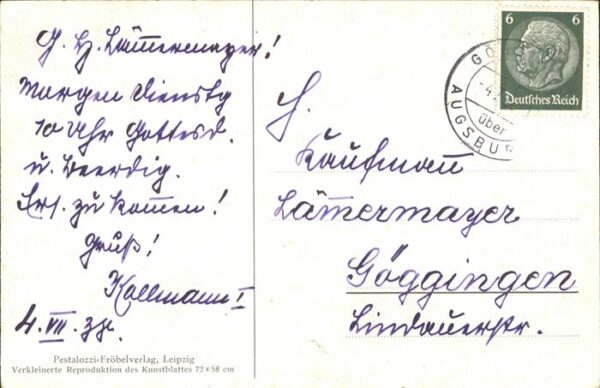 G. H. Lämmermayer!
Morgen Dienstg
10 Uhr Gottesd.
u. Beerdig.
Ers. zu kommen!
Gruß!
Kollmann I
4. VII. 38.
Pestalozzi-Fröbelverlag, Leipzig
Verkleinerte Reproduktion des Kunstblattes 72 × 58 cm
6 6
Deutsches Reich
AUGSBUR
über
H.
Kaufmañ
Läm̃ermayer
Göggingen
Lindauerstr.